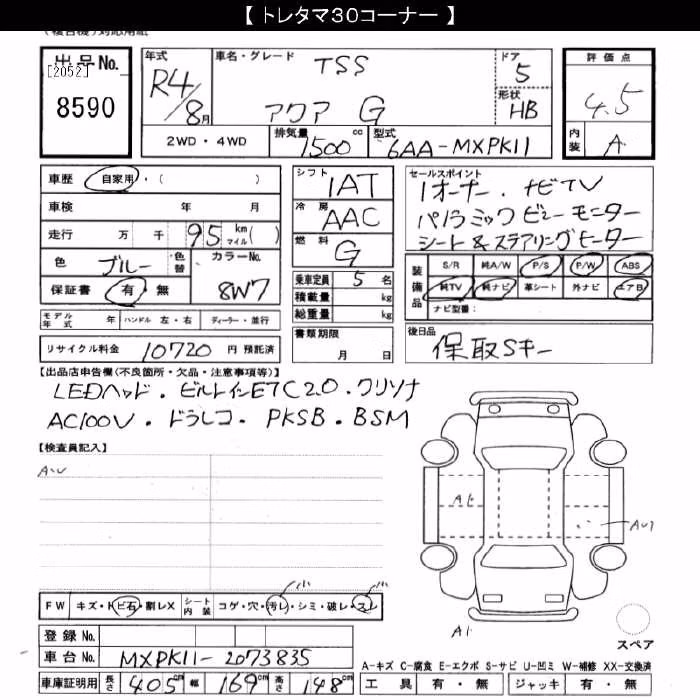 【 トレタマ30コーナー 】
出品No.
[2052]
8590
年式
R4/8月
車名・グレード
TSS
アクア G
ドア
5
形状
HB
評価点
4.5
内装
A
2WD・4WD
排気量
1500 cc
型式
6AA-MXPK11
車歴
自家用・( )
車検
年 月
走行
万 千 95 km マイル( )
色
ブルー
色替
カラーNo.
8W7
保証書
有 無
モデル年式
年
ハンドル
左・右
ディーラー・並行
リサイクル料金
10720 円 預託済
シフト
1AT
冷房
AAC
燃料
G
乗車定員
5 名
積載量
kg
総重量
kg
書類期限
月 日
セールスポイント
1オーナー・ナビTV
パノラミックビューモニター
シート&ステアリングヒーター
装備品
S/R 純A/W P/S P/W ABS
純TV 純ナビ 革シート 外ナビ エアB
ナビ型量:
後日品
保取Sキー
【出品店申告欄(不良箇所・欠品・注意事項等)】
LEDヘッド・ビルトインETC2.0・クリソナ
AC100V・ドラレコ・PKSB・BSM
【検査員記入】
A・U
A1
AU1
A1
FW
キズ・トビ石・割レX
シート内装
コゲ・穴・汚レ・シミ・破レ・スレ
小
小
登録No.
車台No.
MXPK11-2073835
車庫証明用
長さ
405 cm
幅
169 cm
高さ
148 cm
スペア
A-キズ C-腐食 E-エクボ S-サビ U-凹ミ W-補修 XX-交換済
工具
有・無
ジャッキ
有・無